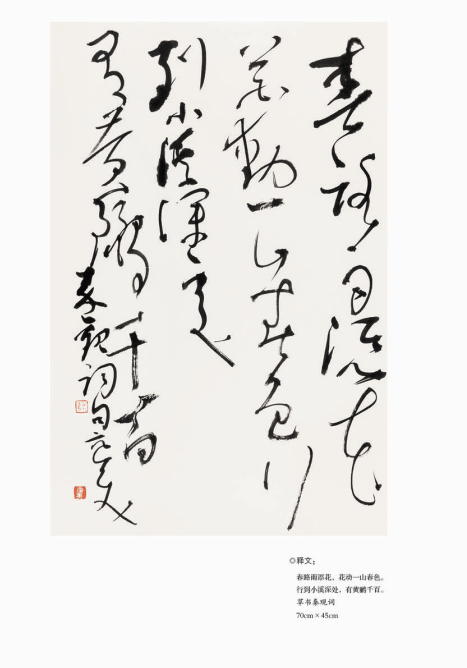 春路雨添花
花動一山春色行
到小溪深處
有黄鸝千百
秦觀詞句
◎释文：
春路雨添花，花动一山春色。
行到小溪深处，有黄鹂千百。
草书秦观词
70cm×45cm